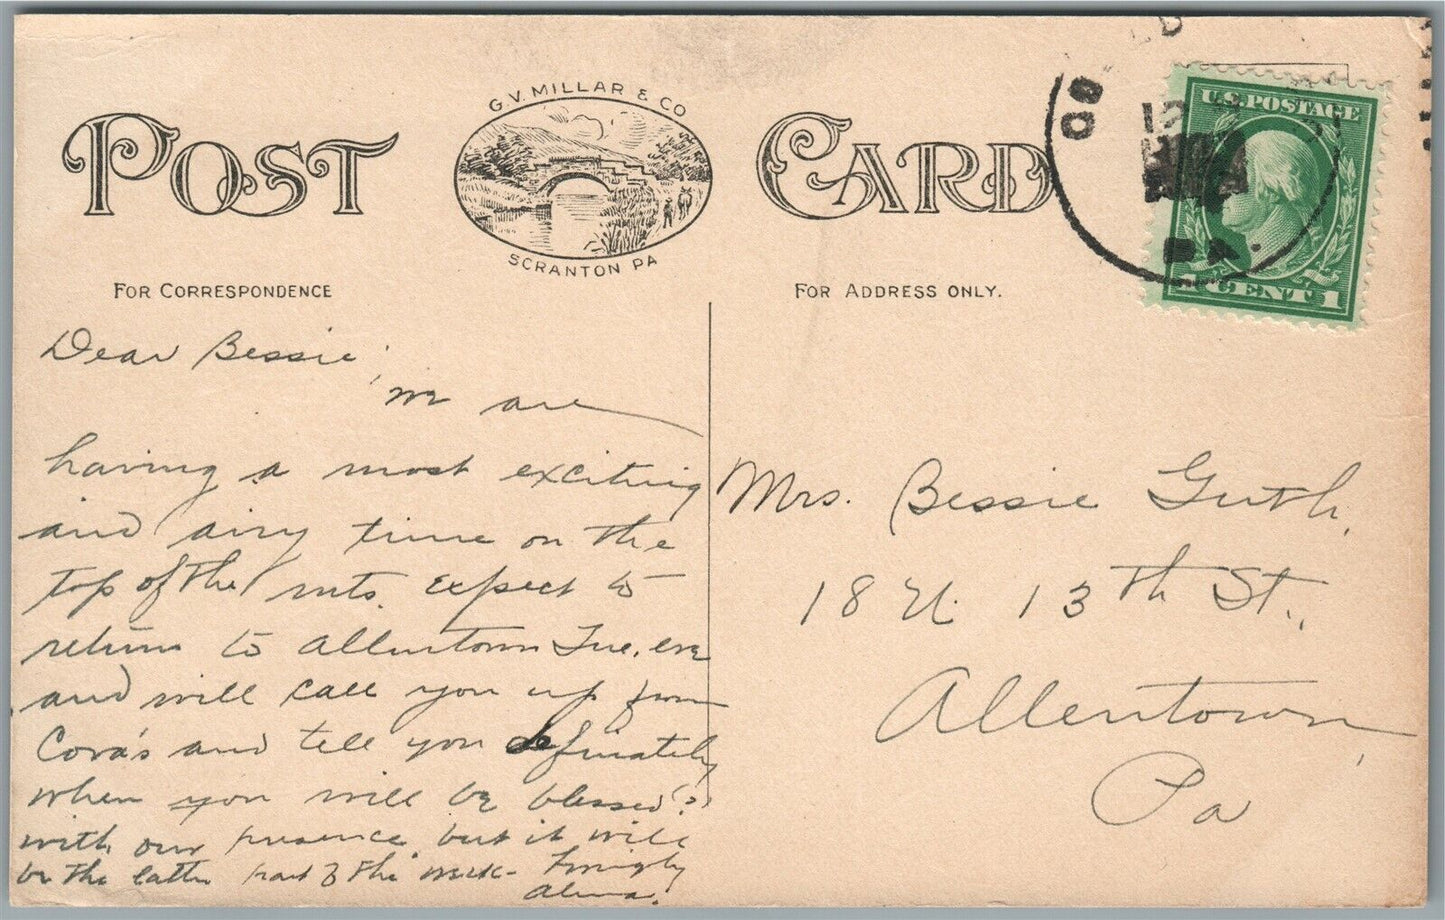 G.V. MILLAR & CO
POST CARD
SCRANTON PA
FOR CORRESPONDENCE
FOR ADDRESS ONLY.
U.S. POSTAGE
1 CENT 1
PA.
Dear Bessie,
We are
having a most exciting
and airy time on the
top of the mts. Expect to
return to Allentown Tue. eve
and will call you up from
Cora's and tell you definately
when you will be blessed (?)
with our presence but it will
be the latter part of the week - Lovingly
Alma.
Mrs. Bessie Guth.
18 N. 13th St.,
Allentown,
Pa